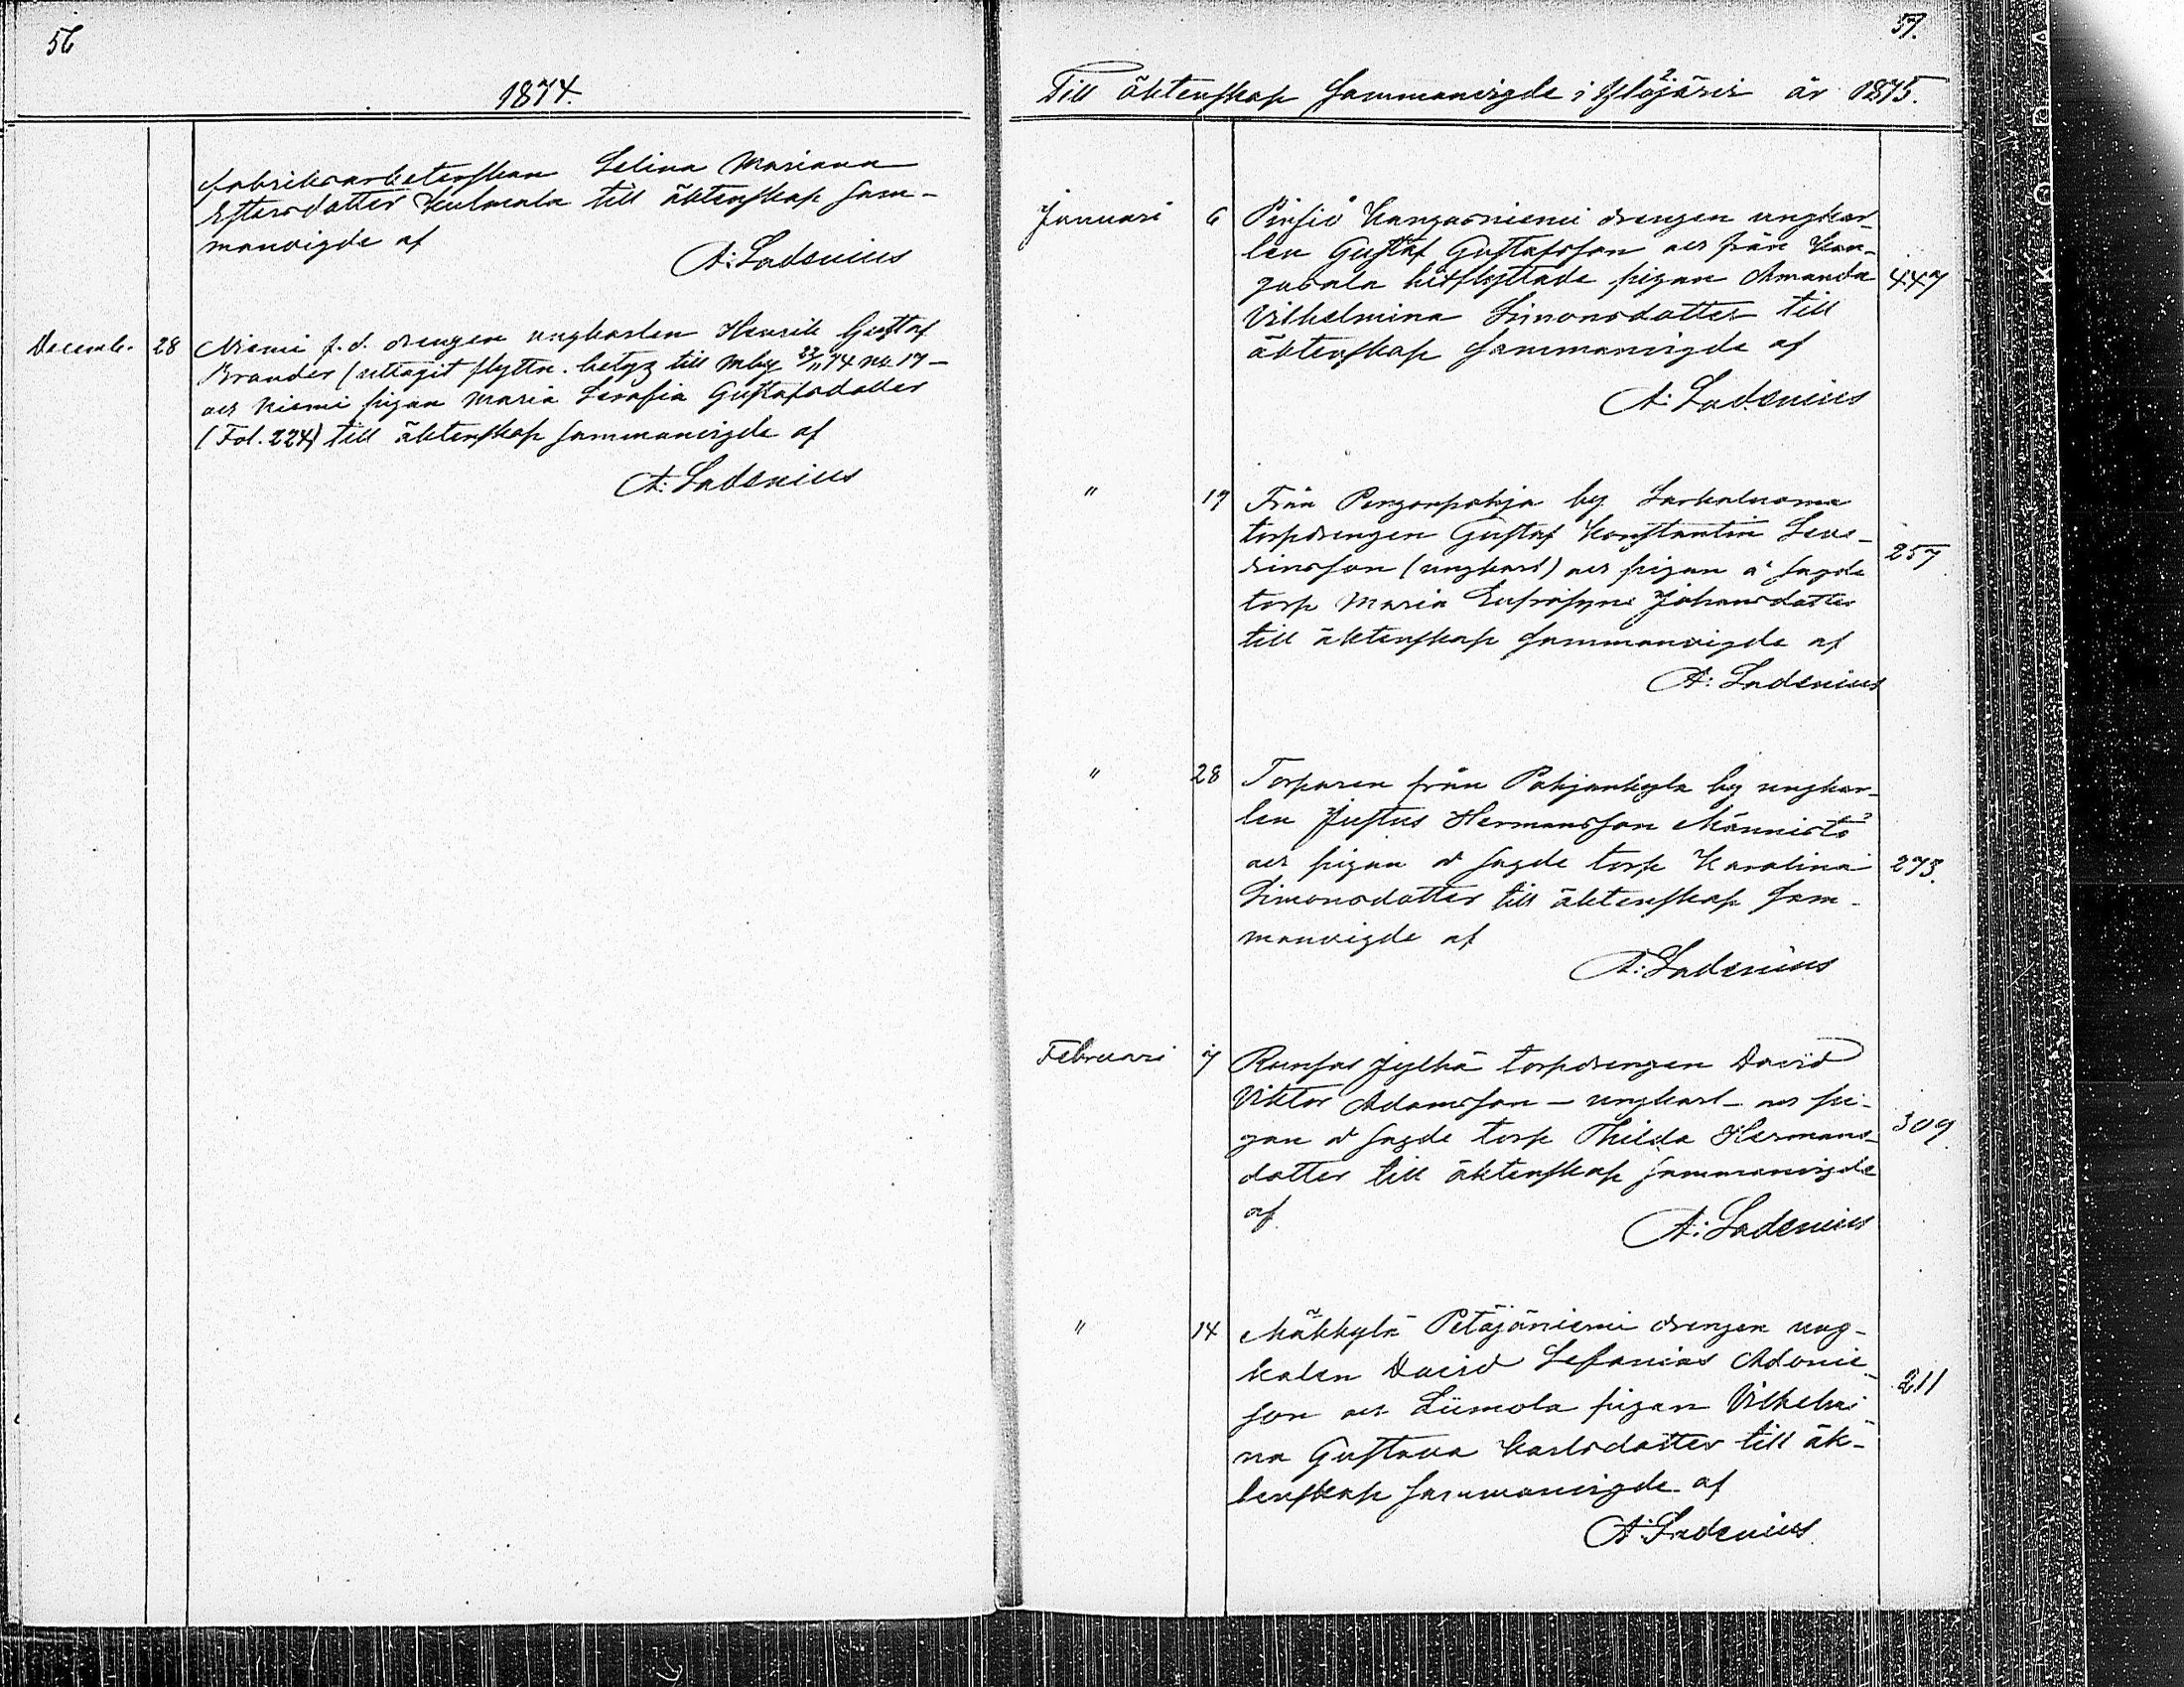 56
1874.
fabriksarbeterskan Selina Mariana
Estersdotter Kulmala till äktenskap sam-
manvigde af
A: Ladenius
Decemb. 28 Niemi f.d. drengen ungkarlen Henrik Gustaf
Brander (uttagit flyttn. betyg till Mby 22/11 74 No 17 -
och Niemi pigan Maria Serafia Gustafsdotter
(Fol. 224) till äktenskap sammanvigde af
A: Ladenius
57.
Till äktenskap sammanvigde i Ylöjärvi år 1875.
Januari 6 Pinsiö Kangasniemi drengen ungkar-
len Gustaf Gustafsson och från Kan-
gasala hitflyttade pigan Amanda 447
Vilhelmina Simonsdotter till
äktenskap sammanvigde af
A: Ladenius
" 17 Från Pengonpohja by Sarkaluoma
torpdrengen Gustaf Konstantin Leve-
rinsson (ungkarl) och pigan å sagde 257
torp Maria Eufrosyne Johansdotter
till äktenskap sammanvigde af
A: Ladenius
" 28 Torparen från Pohjankylä by ungkar-
len Justus Hermansson Männistö
och pigan å sagde torp Karolina 273.
Simonsdotter till äktenskap sam-
manvigde af
A: Ladenius
Februari 7 Runsas Jylhä torpdrengen David
Viktor Adamsson - ungkarl - och pi-
gan å sagde torp Thilda Hermans- 309
dotter till äktenskap sammanvigde
af
A: Ladenius
" 14 Mäkkylä Petäjäniemi drengen ung-
kalen David Sefanias Adonie-
son och Liimola pigan Vilhelmi- 211
na Gustava Karlsdotter till äk-
tenskap sammanvigde af
A: Ladenius